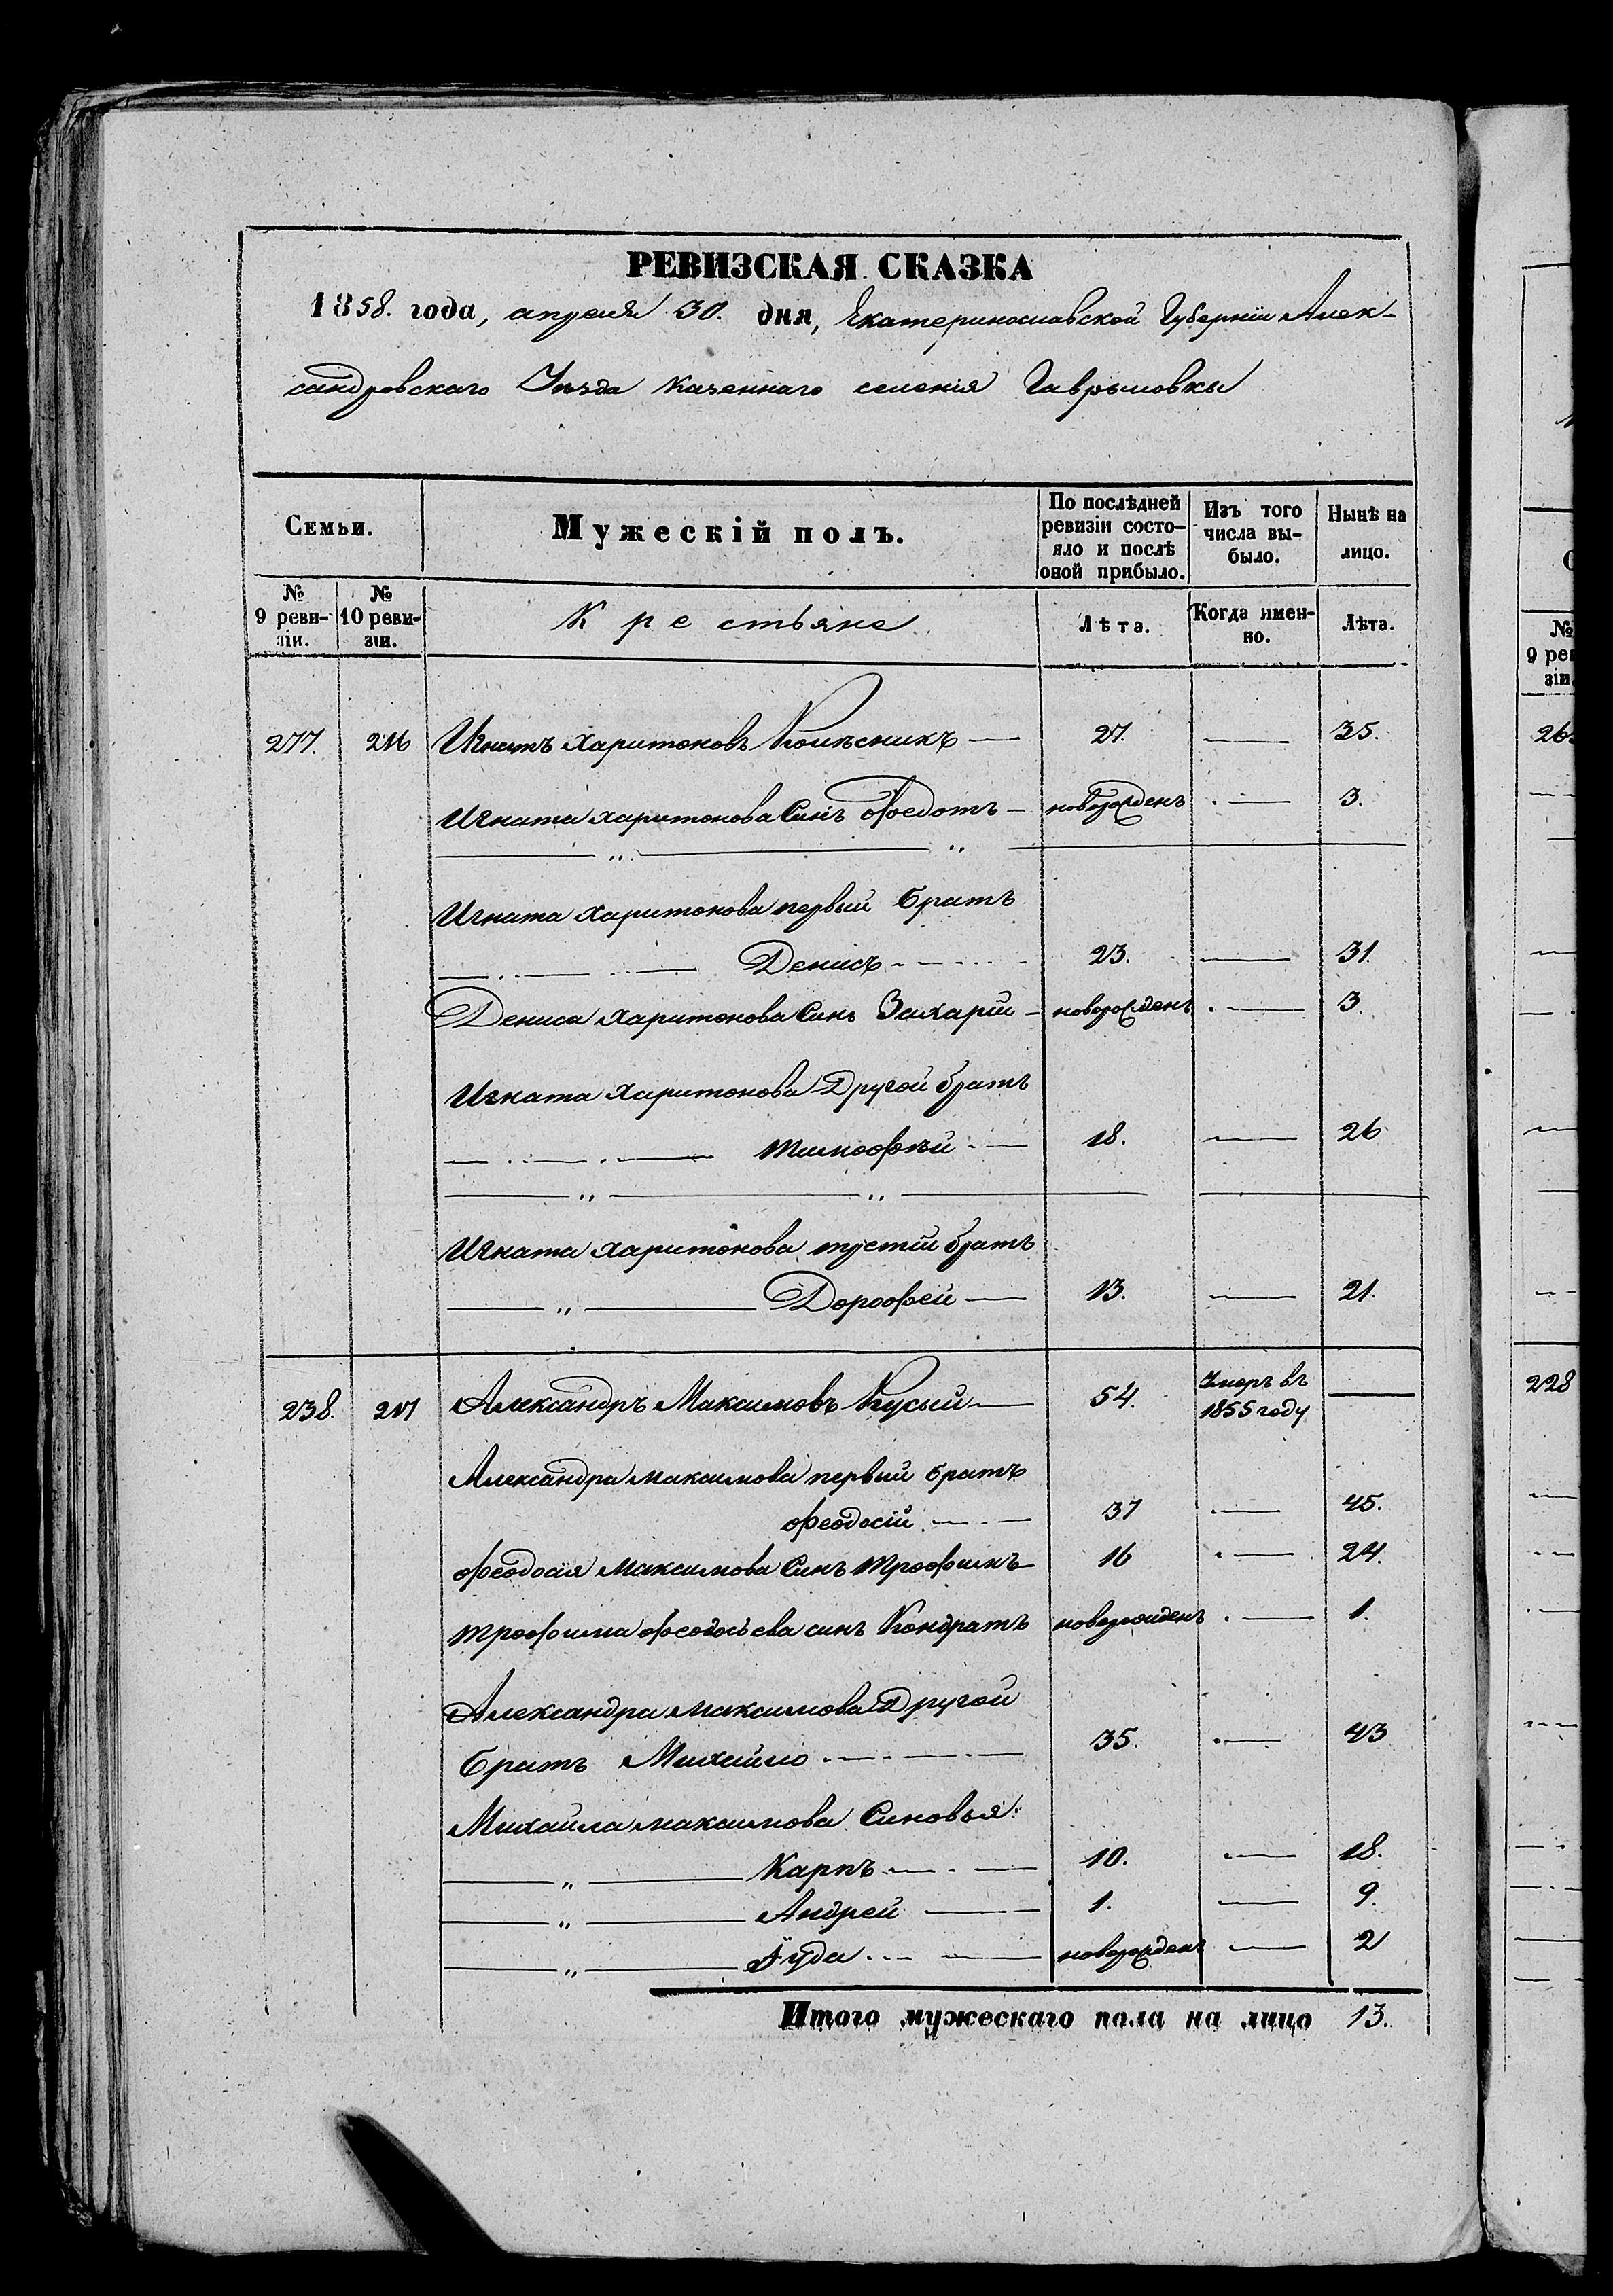 РЕВИЗСКАЯ СКАЗКА
1858. года, апреля 30. дня, Екатеринославской Губерніи Алек-
сандровскаго Уѣзда казеннаго селенія Гаврыловки
Семьи.
Мужескій полъ.
По послѣдней ревизіи состо-яло и послѣ оной прибыло.
Изъ того числа вы-было.
Нынѣ на лицо.
№ 9 реви-зіи.
№ 10 реви-зіи.
Крестьяне
Лѣта.
Когда имен-но.
Лѣта.
277. 216 Игнатъ Харитоновъ Колѣсникъ — 27. — 35.
Игната Харитонова Синъ Федотъ — новорожденъ . — 3.
Игната Харитонова первый братъ
Денисъ 23. — 31.
Дениса Харитонова Синъ Захарій — новорожденъ . — 3.
Игната Харитонова Другой братъ
Тимофѣй — 18. — 26
Игната Харитонова третій братъ
Дорофей — 13. — 21.
238. 217 Александръ Максимовъ Кусый — 54. Умеръ въ 1855 году —
Александра Максимова первый братъ
Феодосій — 37 — 45.
Феодосія Максимова Синъ Трофимъ 16 — 24.
Трофима Феодосьева синъ Кондратъ новорожденъ . — 1.
Александра Максимова Другой
братъ Михайло — 35. — 43
Михайла Максимова Синовья:
Карпъ — 10. — 18.
Андрей — 1. — 9.
Іуда — новорожденъ — 2
Итого мужескаго пола на лицо 13.
№
9 рe
зіи.
228